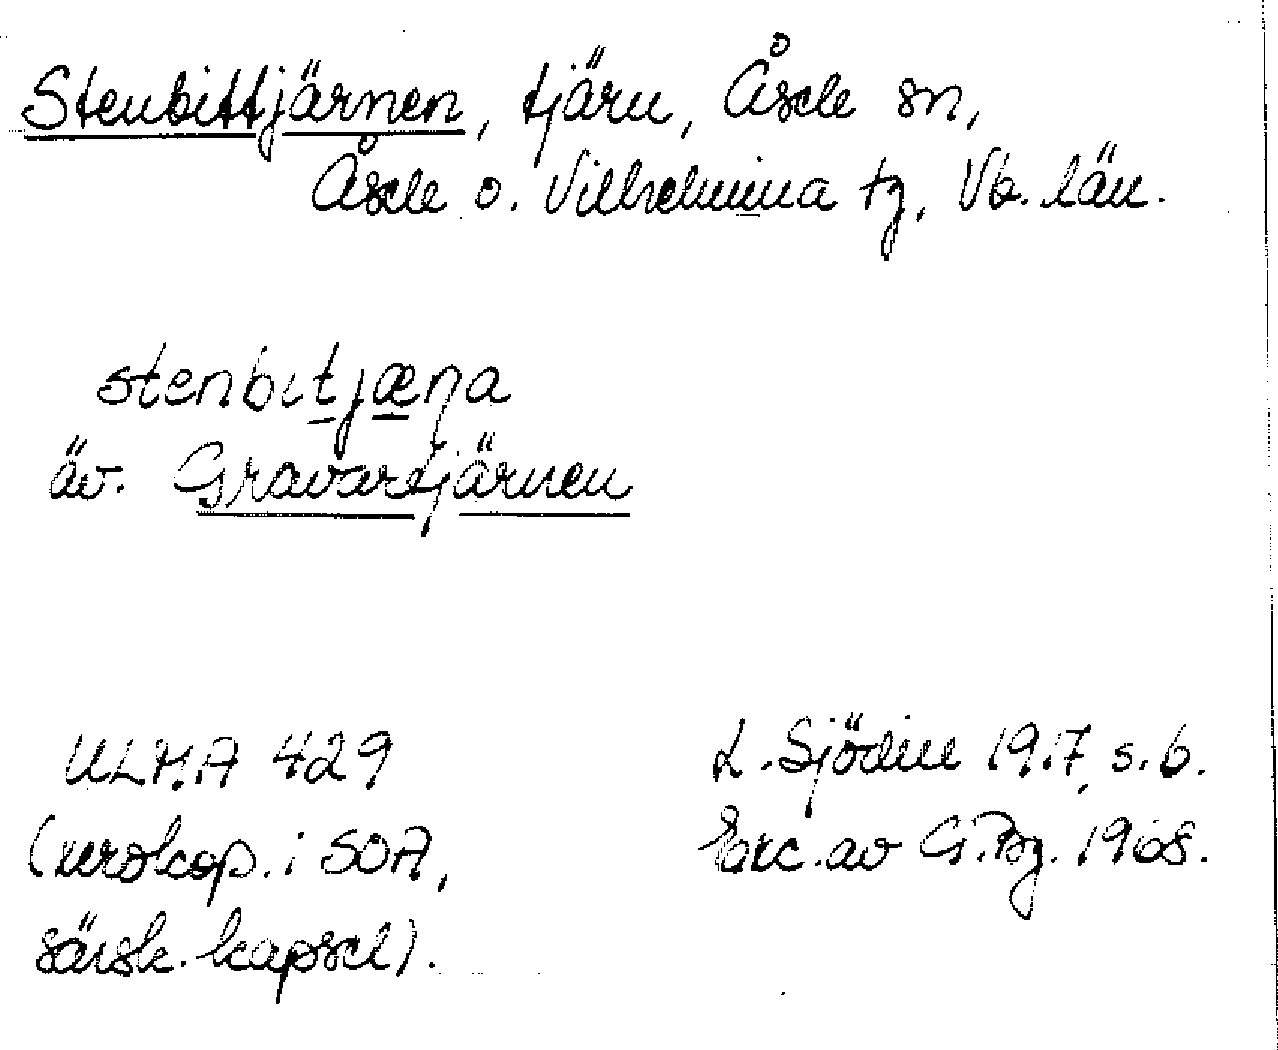 Stenbittjärnen, tjärn, Åsele sn,
Åsele o. Vilhelmina tg, Vb. län.
stenbitjæṇa
äv. Gravartjärnen
ULMA 429
(xerokop. i SOA,
särsk. kapsel).
L. Sjödin 1917, s. 6.
Exc. av G. Bg. 1968.